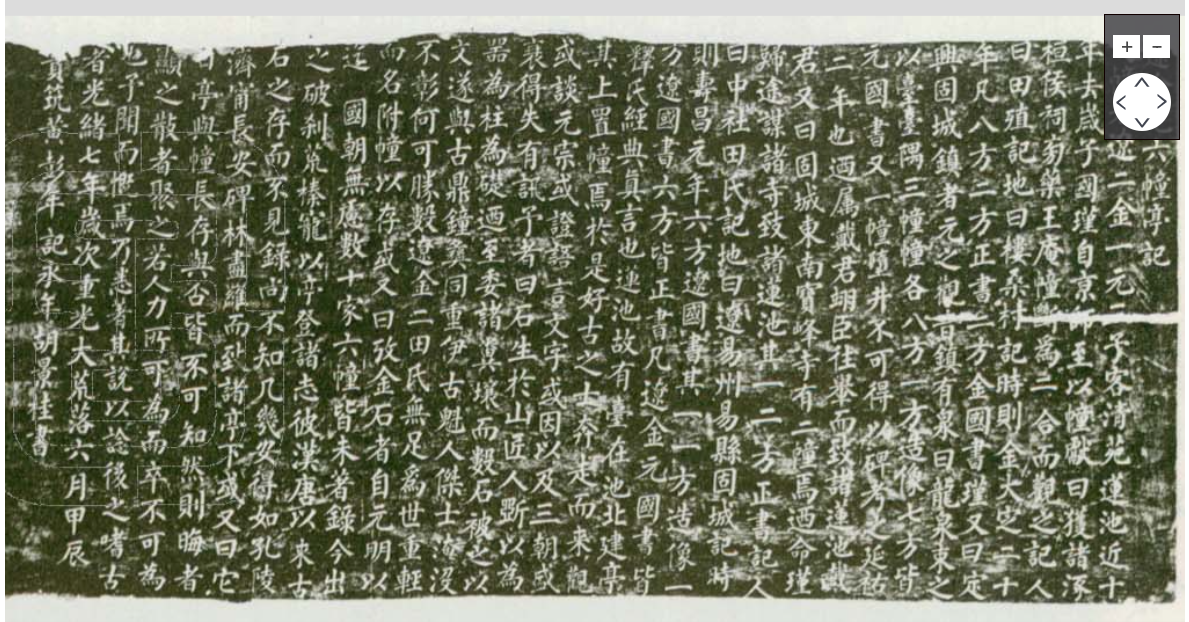 六幢亭記
遼二金一元二予客清苑蓮池近十
年去歲予國瑾自京師至以幢獻曰獲諸涿
桓侯祠旁藥王庵幢斷為二合而觀之記人
曰田瓊記地曰樓桑村記時則金大定二十
年凡八方二方正書二方金國書瑾又曰定
興固城鎮者元之
鎮有泉曰龍泉東之
以臺臺隅三幢幢各八方一方造像七方皆
元國書又一幢墮井不可得以碑考之延祐
二年也迺屬戴君翊臣往舉而致諸蓮池戴
君又曰固城東南寶峰寺有二幢焉迺命瑾
歸途謀諸寺致諸蓮池其一二方正書記人
曰中社田氏記地曰遼易州易縣固城記時
則壽昌元年六方遼國書其一一方造像一
方遼國書六方皆正書凡遼金元國書皆
釋氏經典真言也蓮池故有臺在池北建亭
其上置幢焉於是好古之士奔走而來觀
或談元宗或證語言文字或因以及三朝或
衰得失有訊予者曰石生於山匠人斲以為
器為柱為礎迺至委諸糞壤而數石被之以
文遂與古鼎鐘彝同重伊古魁人傑士淹沒
不彰何可勝數遼金二田氏無足為世重輕
而名附幢以存或又曰攷金石者自元明以
迄國朝無慮數十家六幢皆未著錄今出
之破剎荒榛籠以亭登諸志彼漢唐以來古
石之存而不見錄尚不知凡幾安得如孔陵
濟甯長安碑林盡羅而致諸亭下或又曰它
日亭與幢長存與否皆不可知然則晦者
顯之散者聚之若人力所可為而卒不可為
也予聞而慨焉乃悉書其說以諗後之嗜古
者光緒七年歲次重光大荒落六月甲辰
貴筑黃彭年記永年胡景桂書